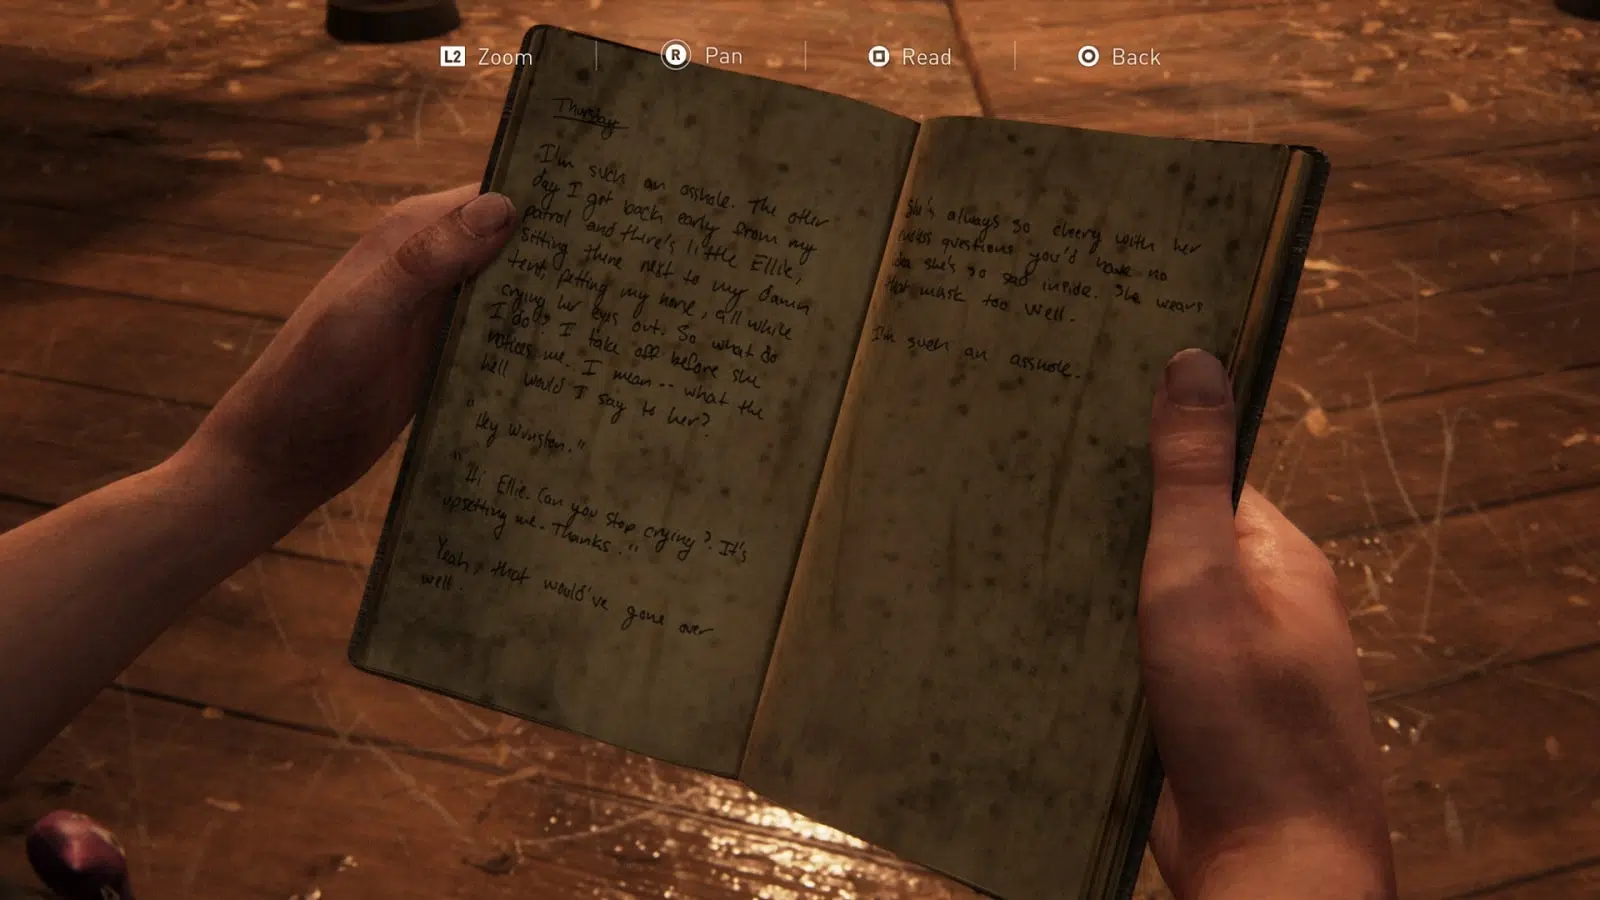 L2 Zoom
R Pan
Read
Back
Thursday
I'm such an asshole. The other
day I got back early from my
patrol and there's little Ellie,
sitting there next to my damn
tent, petting my horse, all while
crying her eyes out. So what do
I do? I take off before she
notices me. I mean -- what the
hell would I say to her?
"Hey Winston."
"Hi Ellie. Can you stop crying? It's
upsetting me. Thanks."
Yeah, that would've gone over
well.
She's always so cheery with her
questions you'd have no
idea she's so sad inside. She wears
that mask too well.
I'm such an asshole.